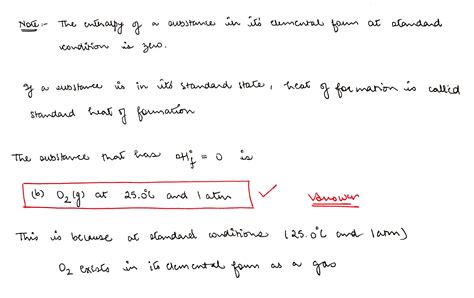 Note:- The enthalpy of a substance in its elemental form at standard
condition is zero.
If a substance is in its standard state, heat of formation is called
standard heat of formation
The substance that has ΔH°f = 0 is
(b) O2(g) at 25.0°C and 1 atm ✓ Answer
This is because at standard conditions (25.0°C and 1 atm)
O2 exists in its elemental form as a gas